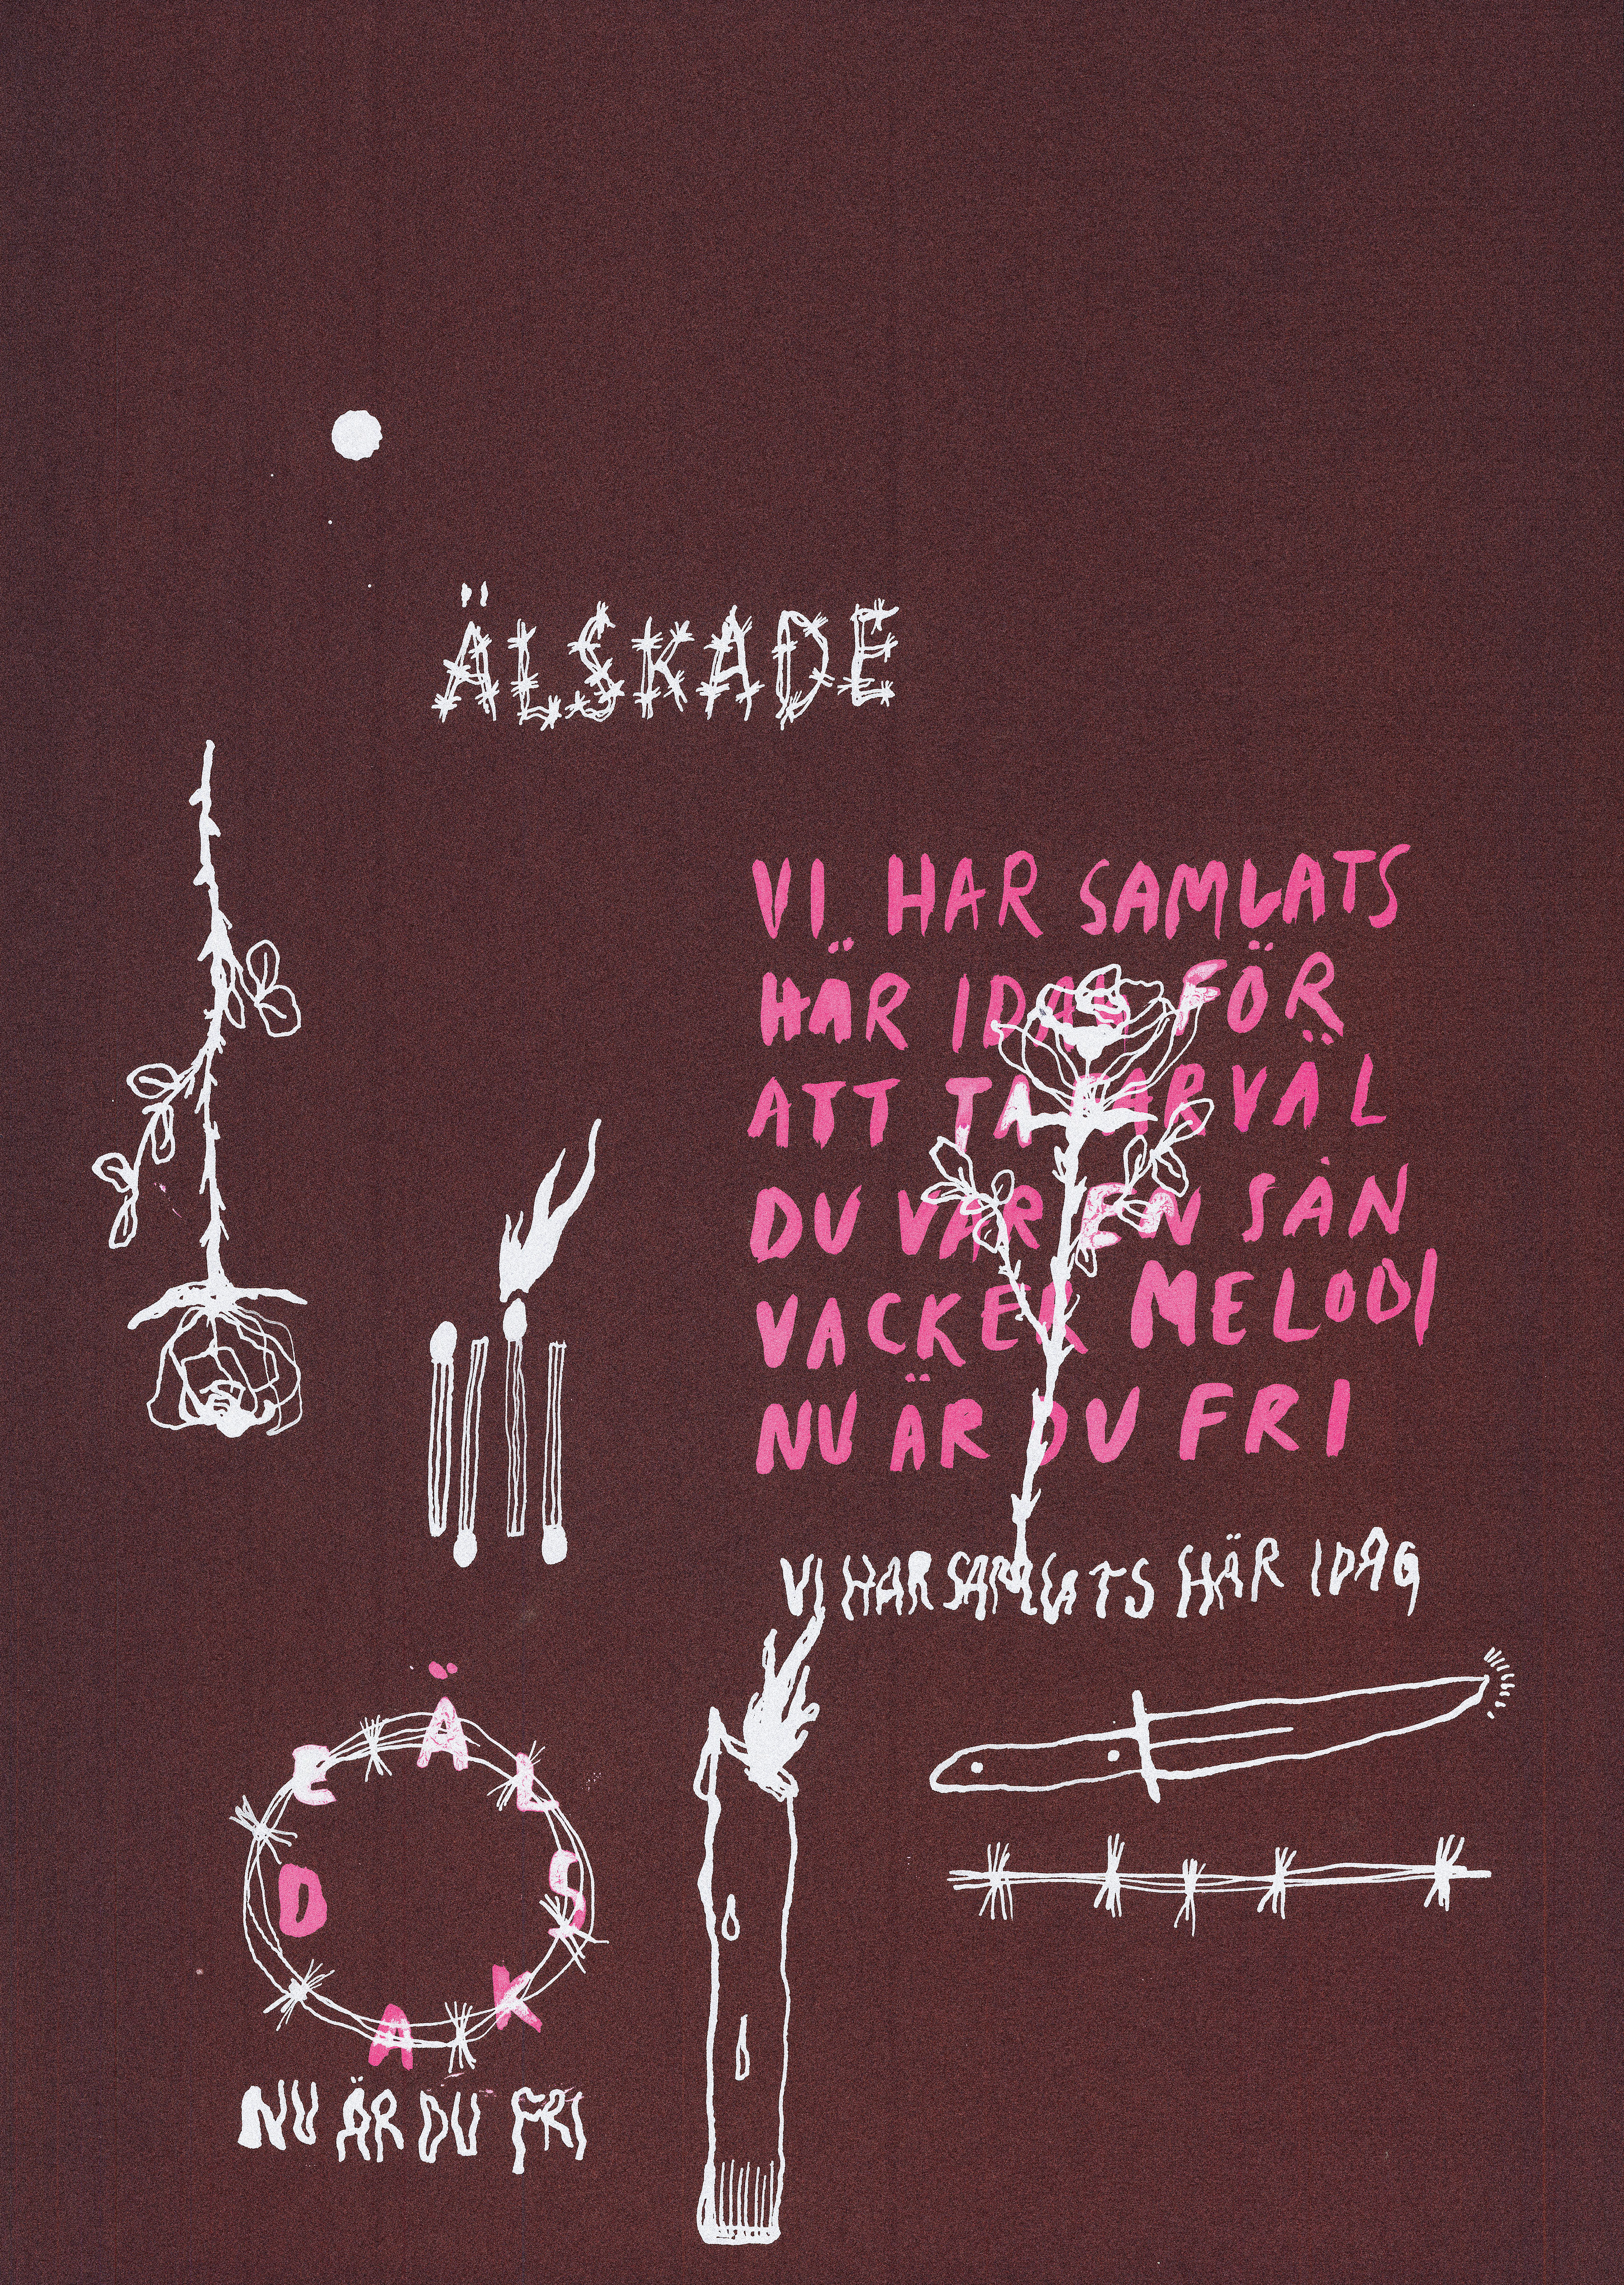 ÄLSKADE
VI HAR SAMLATS
HÄR IDAG FÖR
ATT TA FARVÄL
DU VAR EN SÅN
VACKER MELODI
NU ÄR DU FRI
VI HAR SAMLATS HÄR IDAG
ÄLSKADE
NU ÄR DU FRI